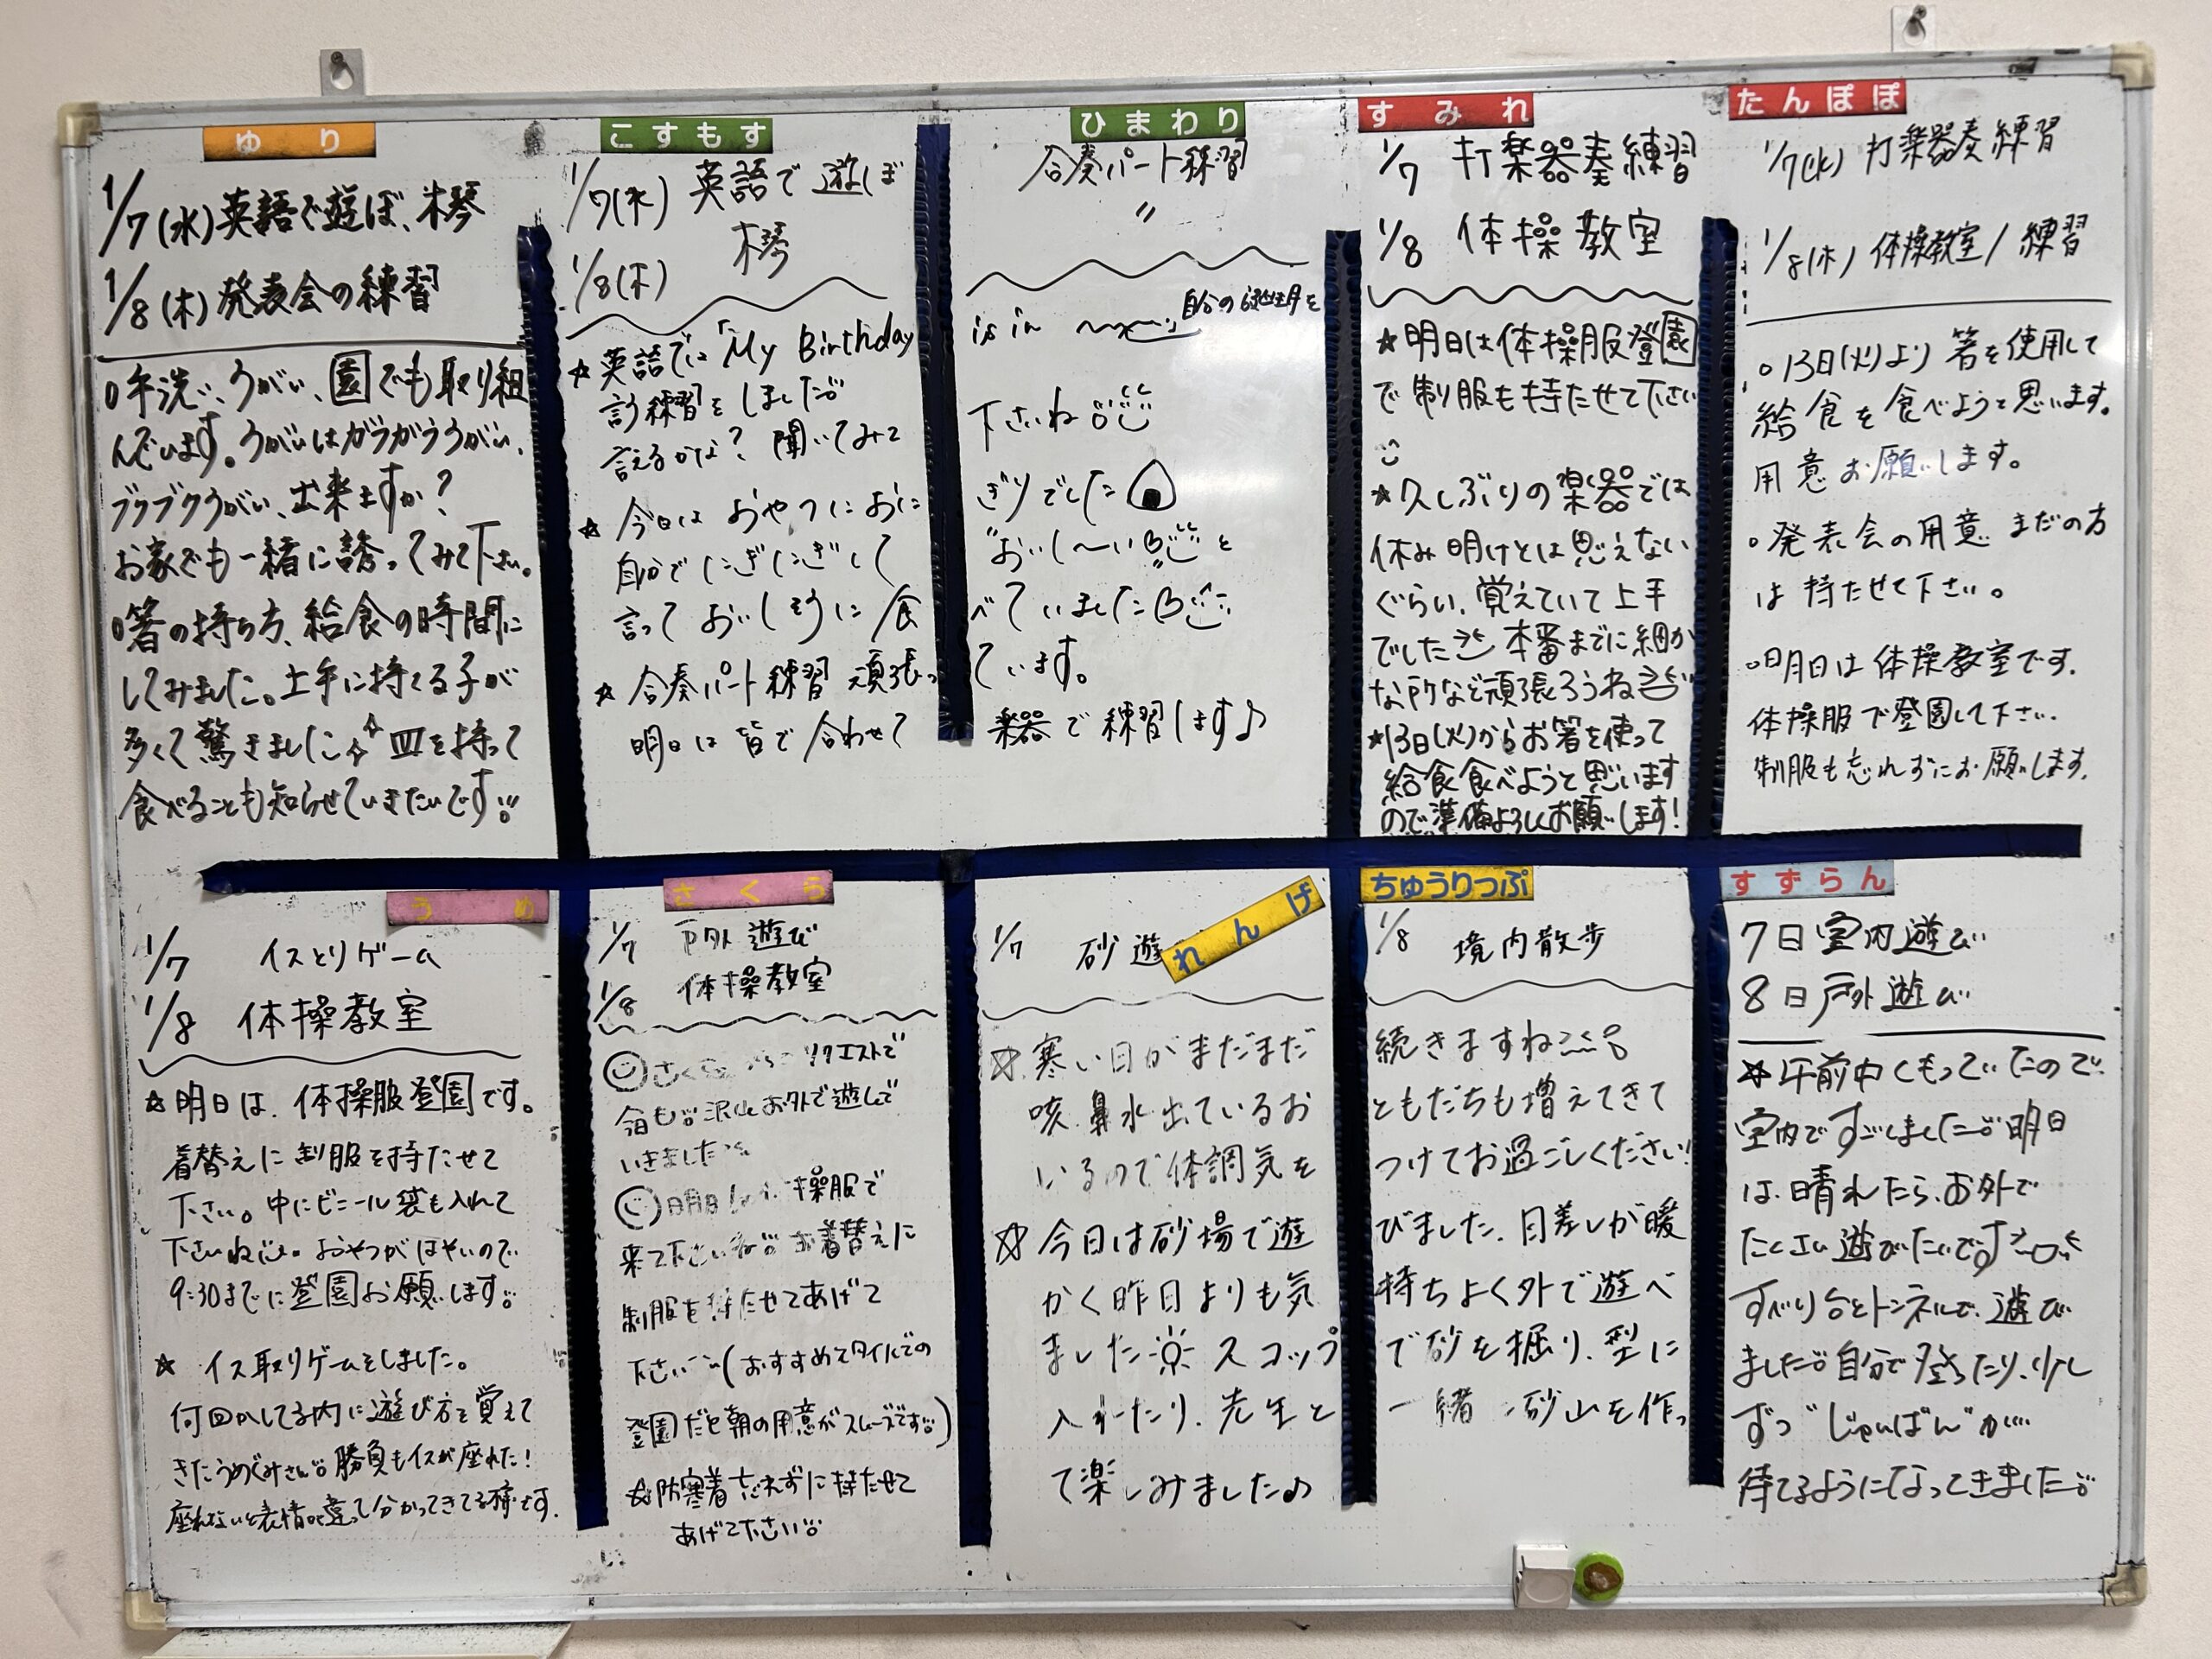 ゆり
1/7(水)英語で遊ぼ、木琴
1/8(木)発表会の練習
○手洗い、うがい、園でも取り組
んでいます。うがいはガラガラうがい、
ブクブクうがい、出来ますか?
お家でも一緒に誘ってみて下さい。
○箸の持ち方、給食の時間に
してみました。上手に持てる子が
多くて驚きました 皿を持って
食べることも知らせていきたいです
こすもす
ひまわり
1/7(水) 英語で遊ぼ 合奏パート練習
木琴 〃
1/8(木)
☆英語では「My Birthday is in 〜〜」自分の誕生月を
言う練習をしました
言えるかな? 聞いてみて下さいね
☆今日はおやつにおにぎりでした
自分でにぎにぎして"おいし〜い"と
言っておいしそうに食べていました
☆合奏パート練習 頑張っています。
明日は皆で合わせて 楽器で練習します♪
すみれ
1/7 打楽器奏練習
1/8 体操教室
★明日は体操服登園
で制服も持たせて下さい
★久しぶりの楽器では
休み明けとは思えない
ぐらい、覚えていて上手
でした 本番までに細か
な所など頑張ろうね
★13日(火)からお箸を使って
給食食べようと思います
ので準備よろしくお願いします!
たんぽぽ
1/7(水) 打楽器奏練習
1/8(木) 体操教室/練習
○13日(火)より箸を使用して
給食を食べようと思います。
用意お願いします。
○発表会の用意まだの方
は持たせて下さい。
○明日は体操教室です。
体操服で登園して下さい。
制服も忘れずにお願いします。
うめ
1/7 イスとりゲーム
1/8 体操教室
☆明日は、体操服登園です。
着替えに制服を持たせて
下さい。中にビニール袋も入れて
下さいね。おやつがはやいので
9:30までに登園お願いします。
☆ イス取りゲームをしました。
何回かしてる内に遊び方を覚えて
きたうめぐみさん 勝負もイスが座れた!
座れないと表情も違って分かってきてる様です.
さくら
1/7 戸外遊び
1/8 体操教室
リクエストで
今日も 沢山お外で遊んで
いきました
明日は 体操服で
来て下さいね お着替えに
制服を持たせてあげて
下さい(おすすめスタイルでの
登園だと朝の用意がスムーズです)
☆防寒着 忘れずに持たせて
あげて下さい
れんげ
ちゅうりっぷ
1/7 砂遊 1/8 境内散歩
☆寒い日がまだまだ続きますね
咳、鼻水出ているおともだちも増えてきて
いるので体調気をつけてお過ごしください!
☆今日は砂場で遊びました. 日差しが暖
かく昨日よりも気持ちよく外で遊べ
ました スコップで砂を掘り、型に
入れたり、先生と一緒に砂山を作っ
て楽しみました♪
すずらん
7日 室内遊び
8日 戸外遊び
☆午前中くもっていたので
室内ですごしました 明日
は、晴れたら、お外で
たくさん遊びたいです
すべり台とトンネルで、遊び
ました 自分で登ったり、少し
ずつ"じゅんばん"が
待てるようになってきました